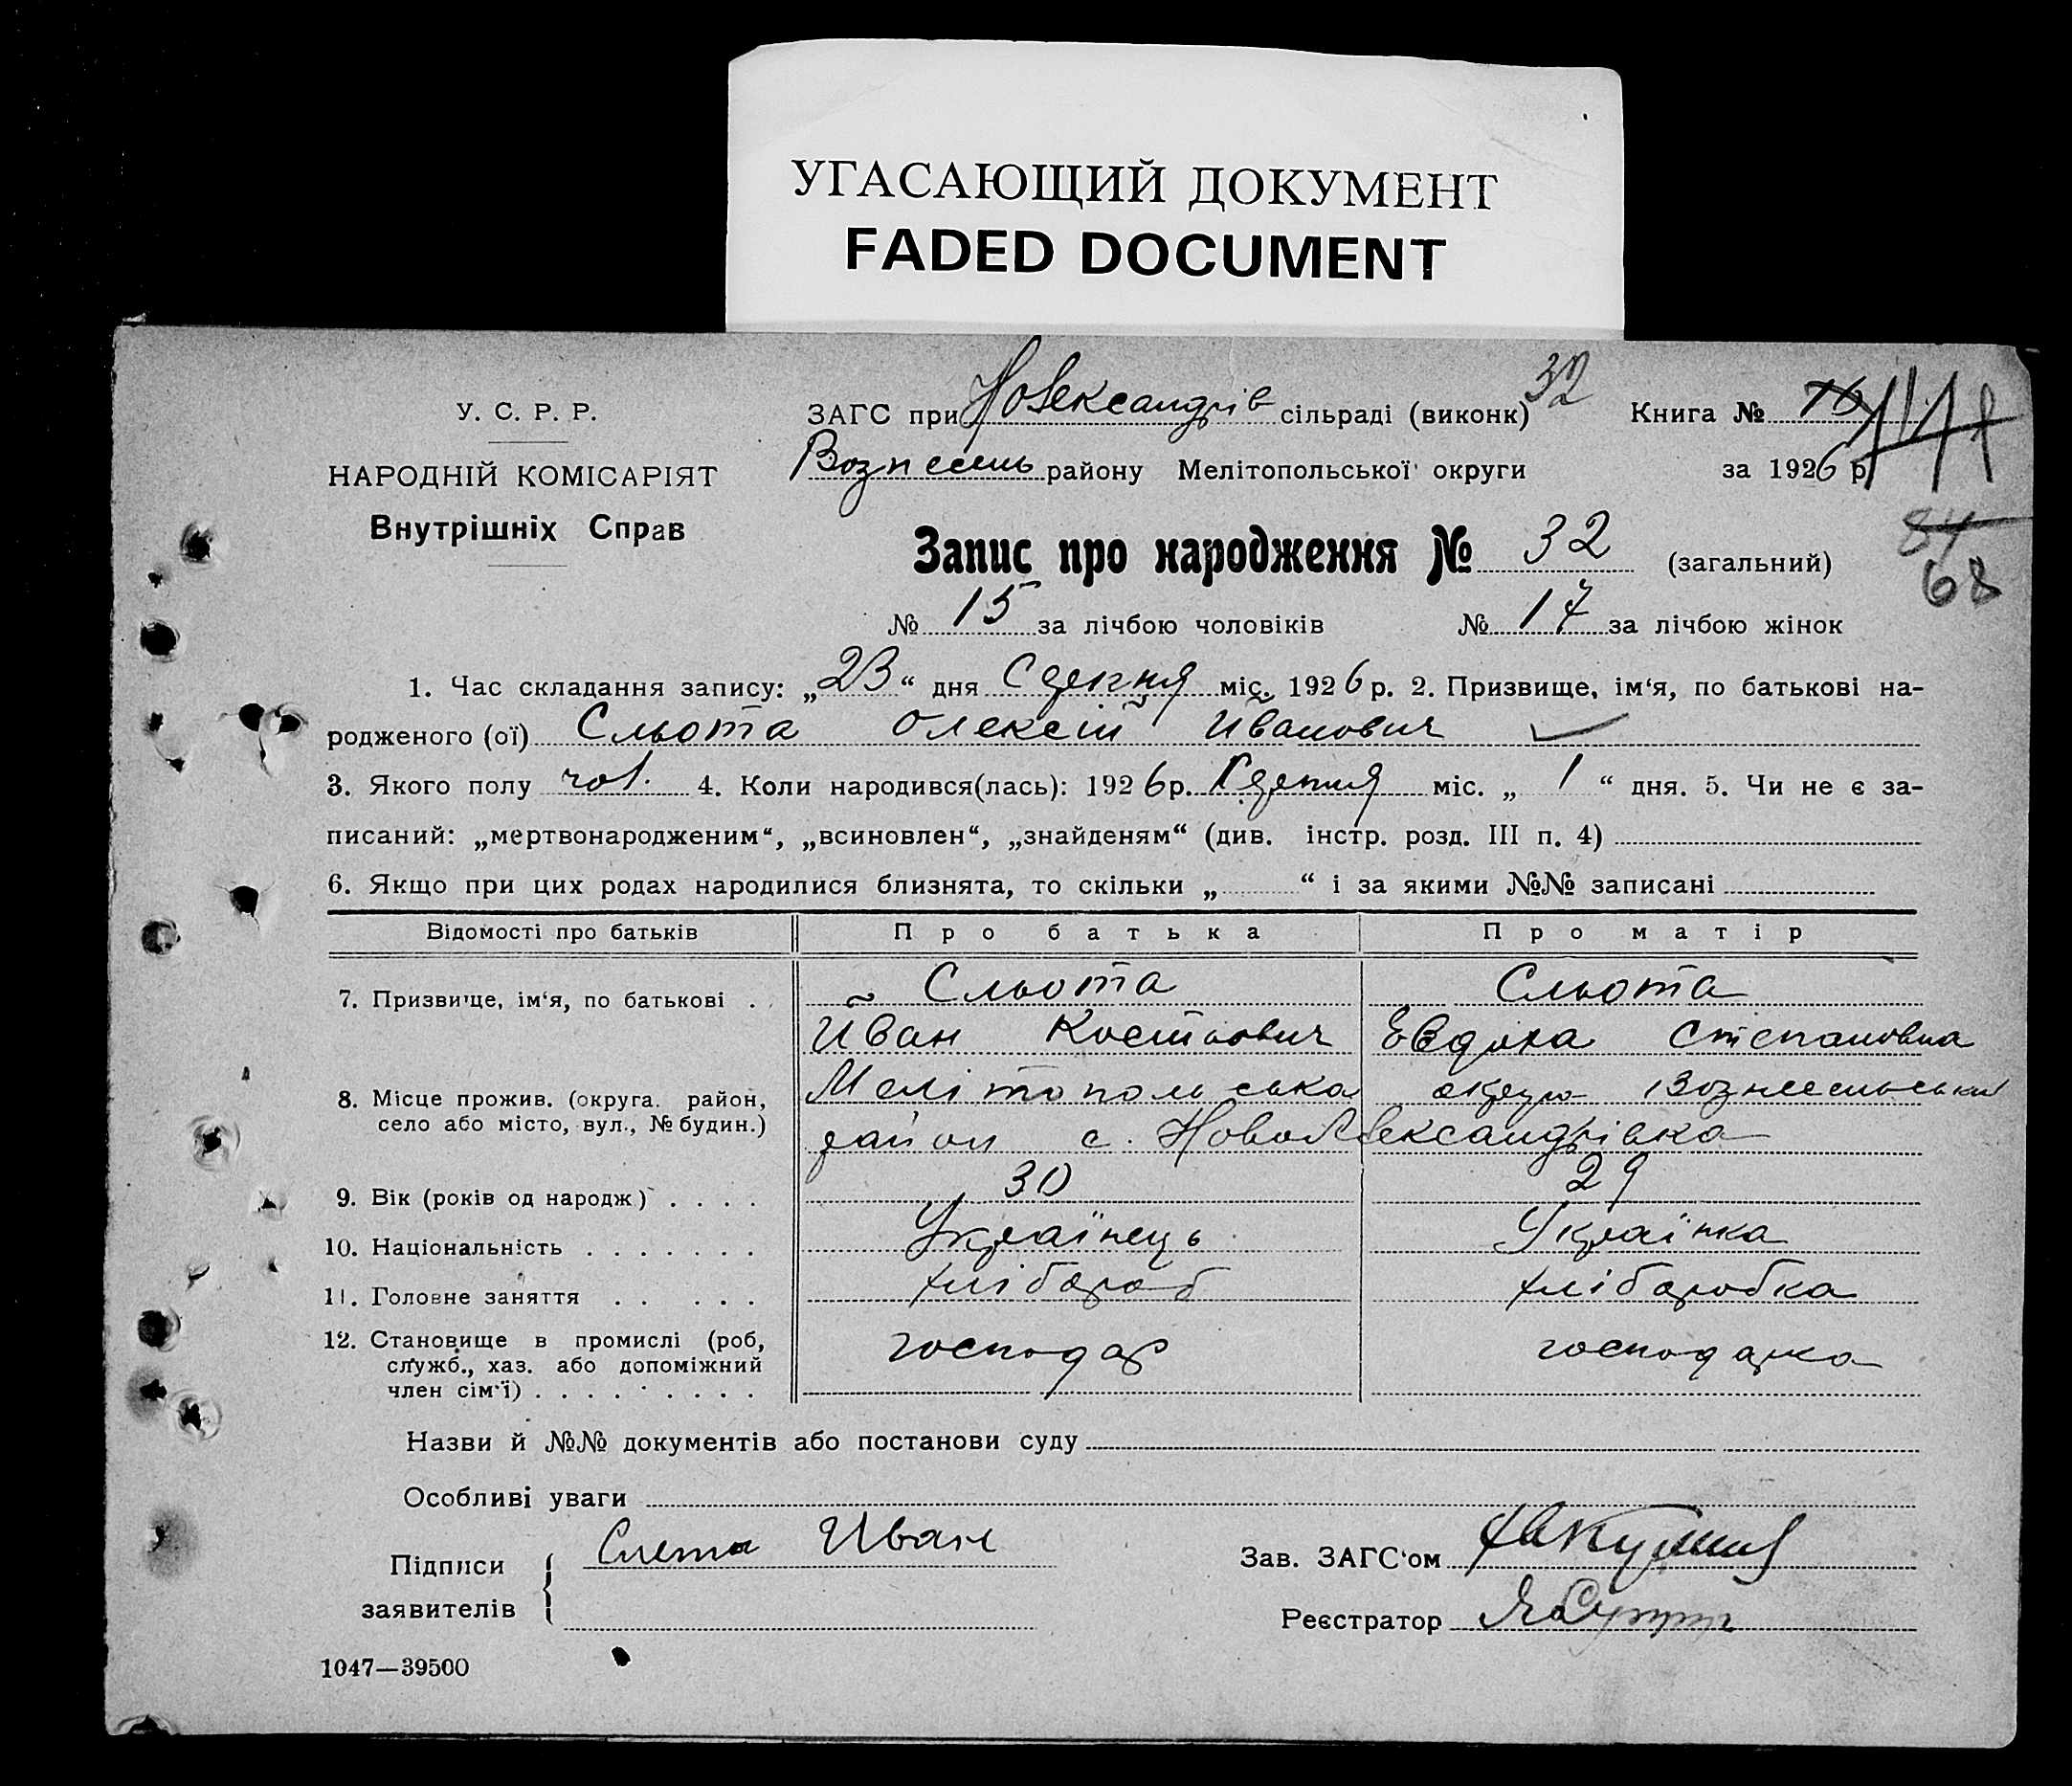 УГАСАЮЩИЙ ДОКУМЕНТ
FADED DOCUMENT
У. С. Р. Р.
НАРОДНІЙ КОМІСАРІЯТ
Внутрішніх Справ
ЗАГС при Новександрів сільраді (виконк) 32
Книга №
Вознесень району Мелітопольської округи за 1926 р
Запис про народження № 32 (загальний)
84
68
№ 15 за лічбою чоловіків № 17 за лічбою жінок
1. Час складання запису: „23“ дня Сцепня міс. 1926 р. 2. Призвище, ім‘я, по батькові на-
родженого (ої) Сльота Олексій Иванович
3. Якого полу чол. 4. Коли народився(лась): 1926 р. Сцепня міс. „ 1 “ дня. 5. Чи не є за-
писаний: „мертвонародженим“, „всиновлен“, „знайденям“ (див. інстр. розд. III п. 4)
6. Якщо при цих родах народилися близнята, то скільки „ “ і за якими №№ записані
Відомості про батьків Про батька Про матір
7. Призвище, ім‘я, по батькові . Сльота Сльота
Иван Костьович Евдоха Степановна
8. Місце прожив. (округа. район, село або місто, вул., № будин.)
Мелітопольська округа Вознесенський
район с. НовоЛександрівка
9. Вік (років од народж) . . . . 30 29
10. Національність . . . . . . . Українець Українка
11. Головне заняття . . . . . хлібароб хлібаробка
12. Становище в промислі (роб,
служб., хаз. або допоміжний
член сім‘ї) . . . . . . . . .
господар господарка
Назви й №№ документів або постанови суду
Особливі уваги
Підписи
заявителів
Слета Иван
Зав. ЗАГС‘ом
Реєстратор
1047—39500